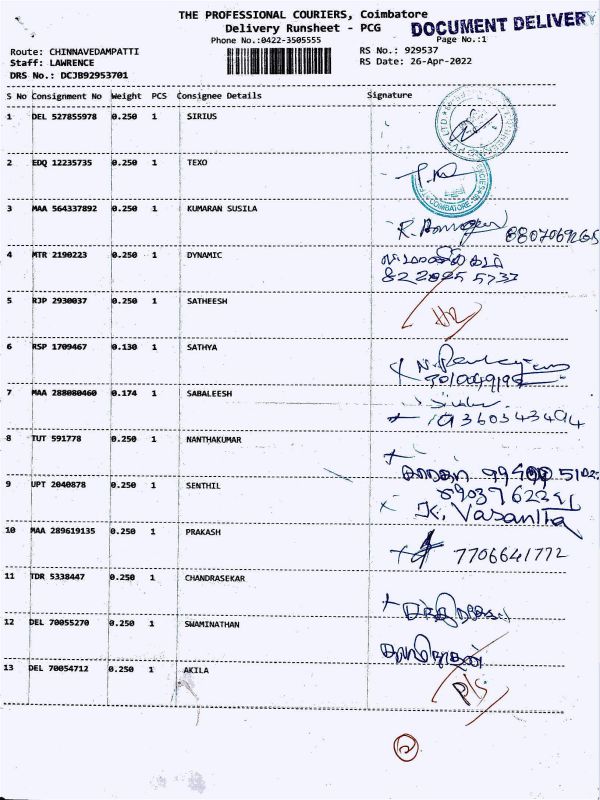 THE PROFESSIONAL COURIERS, Coimbatore
DOCUMENT DELIVERY
Delivery Runsheet - PCG
Phone No.:0422-3505555
Page No.:1
Route: CHINNAVEDAMPATTI
RS No.: 929537
Staff: LAWRENCE
RS Date: 26-Apr-2022
DRS No.: DCJB92953701
S No Consignment No Weight PCS Consignee Details Signature
1 DEL 527855978 0.250 1 SIRIUS
2 EDQ 12235735 0.250 1 TEXO
COIMBATORE
3 MAA 564337892 0.250 1 KUMARAN SUSILA
R.
4 MTR 2190223 0.250 1 DYNAMIC
5 RJP 2930037 0.250 1 SATHEESH
6 RSP 1709467 0.130 1 SATHYA
7 MAA 288080460 0.174 1 SABALEESH
9360343494
8 TUT 591778 0.250 1 NANTHAKUMAR
9 UPT 2040878 0.250 1 SENTHIL
K. Vasantha
10 MAA 289619135 0.250 1 PRAKASH
7706641772
11 TDR 5338447 0.250 1 CHANDRASEKAR
12 DEL 70055270 0.250 1 SWAMINATHAN
13 DEL 70054712 0.250 1 AKILA